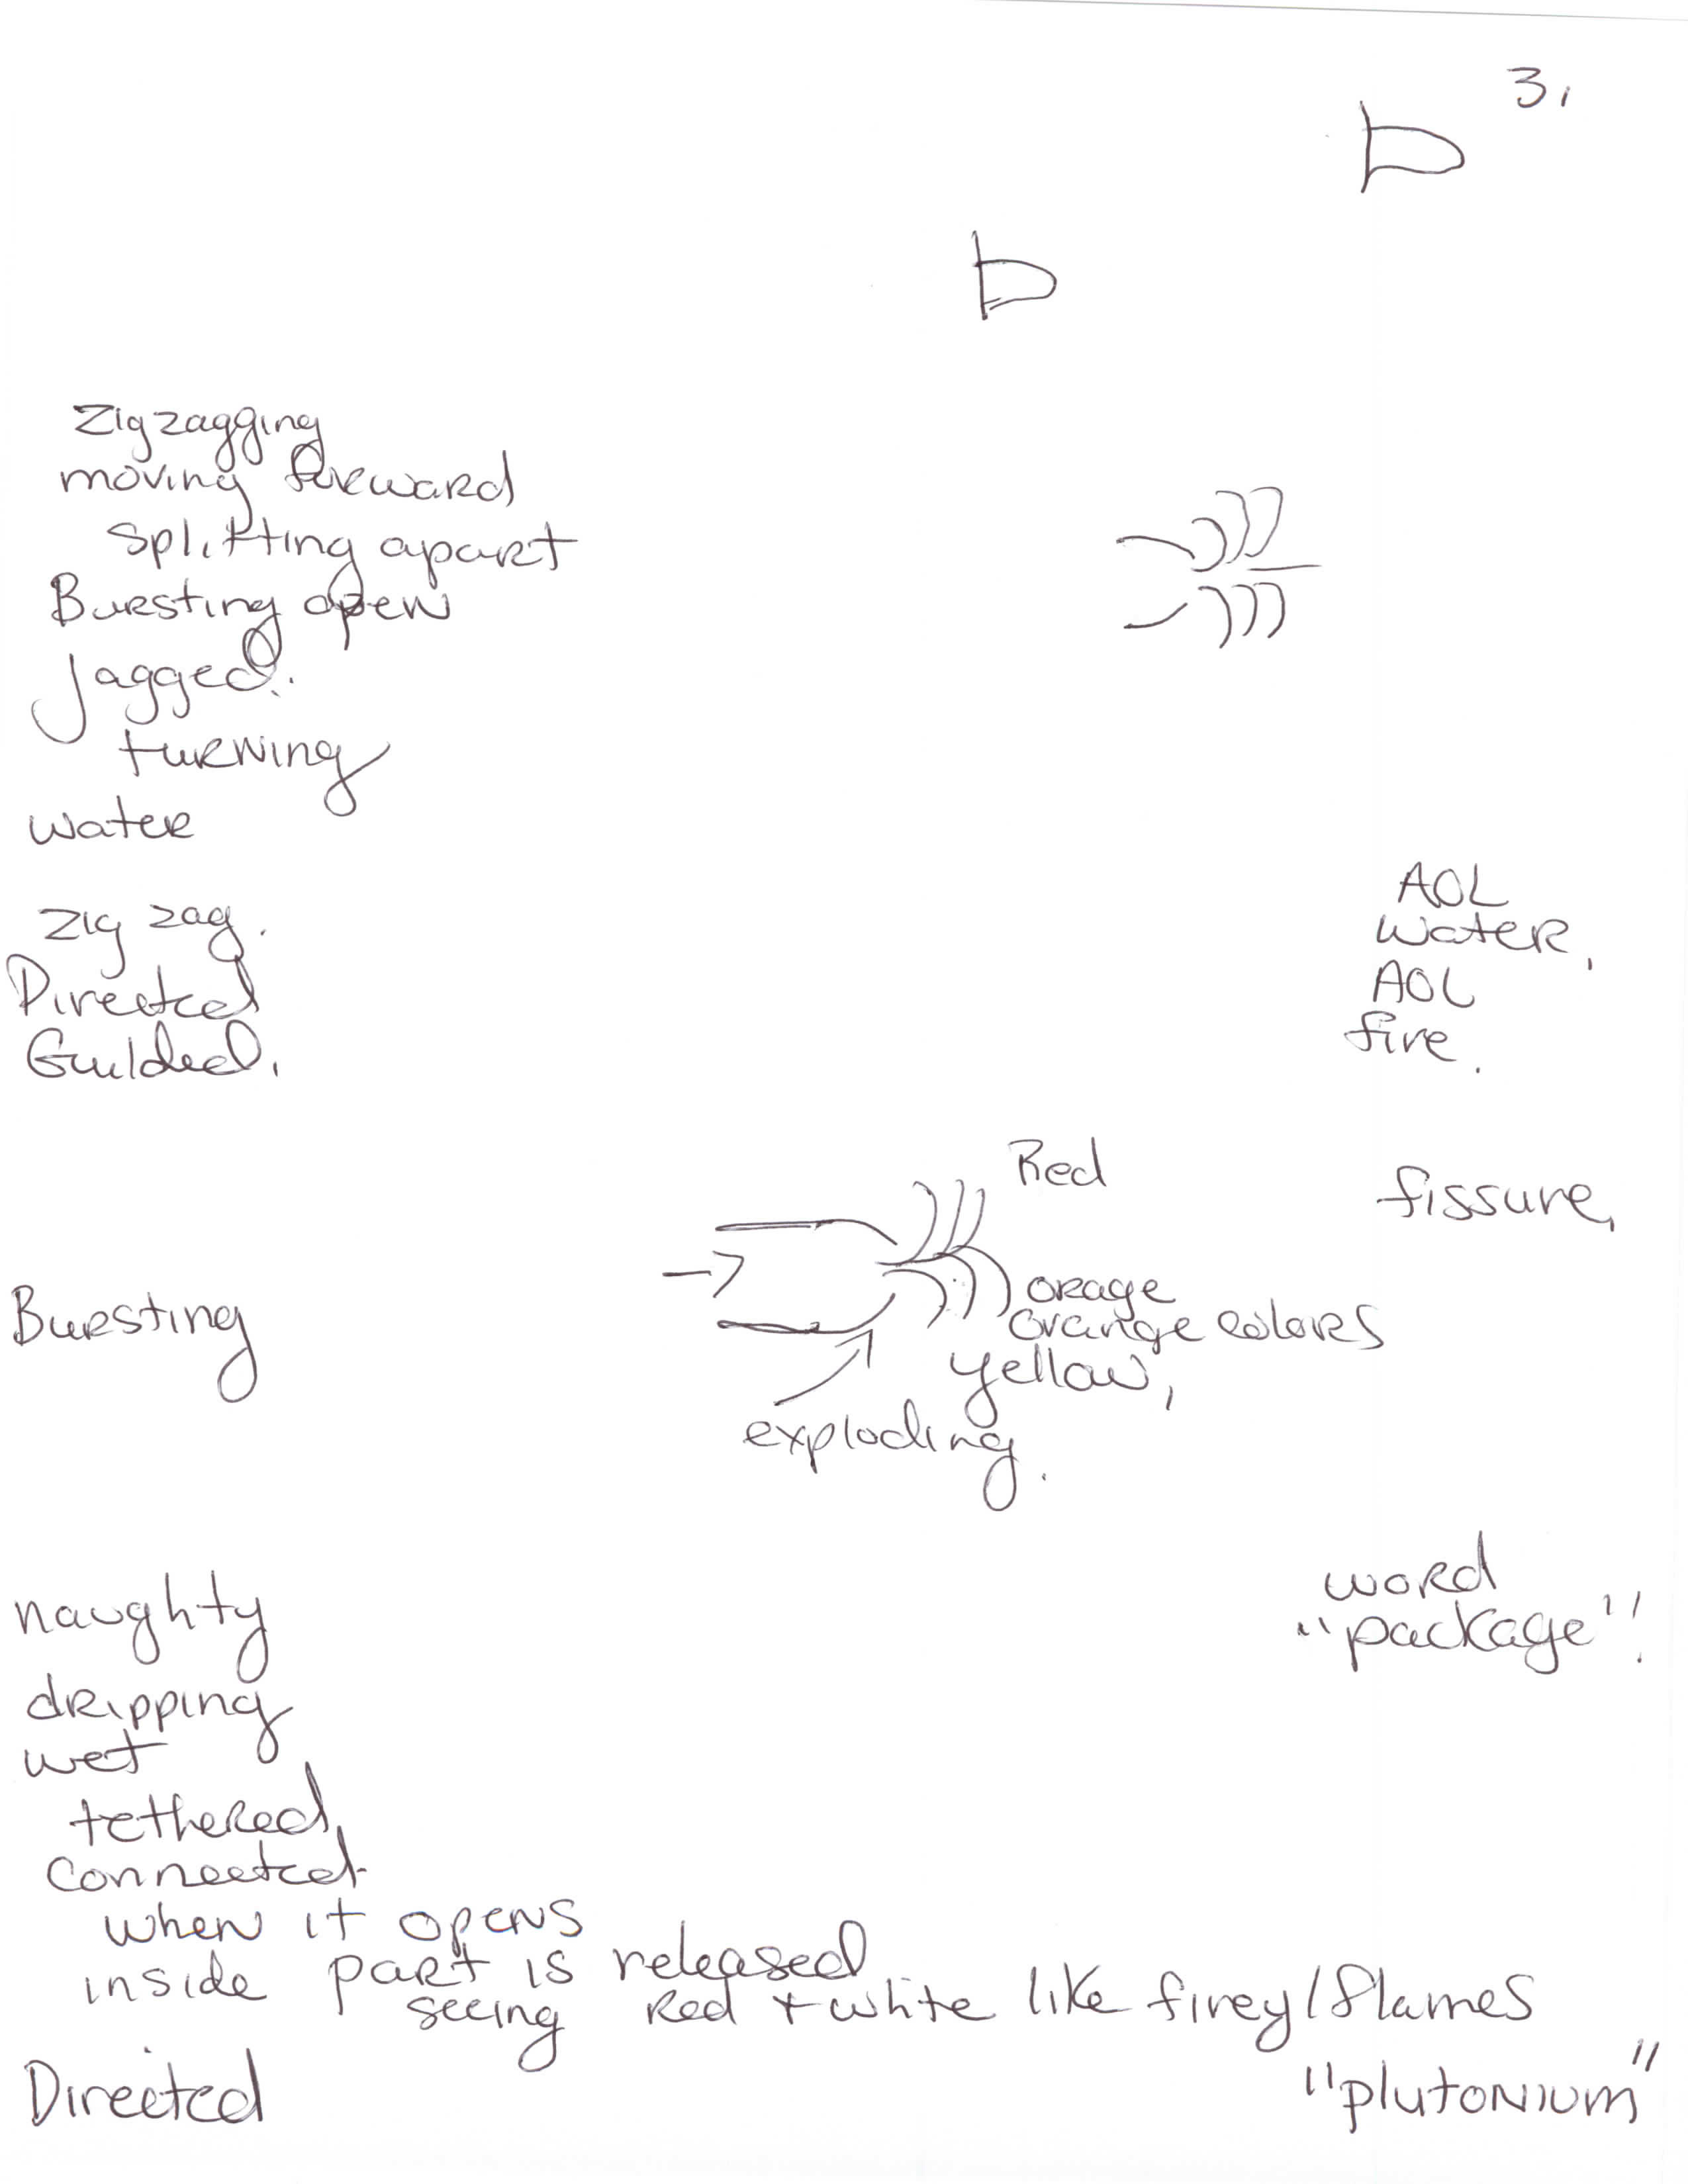 3,
Zigzagging
moving forward
Splitting apart
Bursting open
Jagged.
turning
water
AOL
Zig zag.
Water,
Directed
AOL
Guilded,
fire.
Red
fissure,
orage
Bursting
orange colors
yellow,
exploding.
word
naughty
"package".
dripping
wet
tethered,
Connected
when it opens
inside part is released
seeing Red + white like firey/flames
Directed
"plutonium"